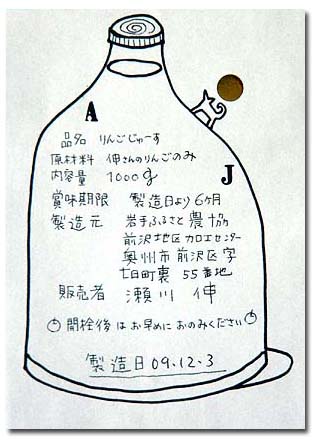 A
品名 りんごじゅーす
原材料 伸さんのりんごのみ
内容量 1000g
J
賞味期限 製造日より6ケ月
製造元 岩手ふるさと農協
前沢地区カロエセンター
奥州市前沢区字
七日町裏 55番地
販売者 瀬川 伸
開栓後はお早めにおのみください
製造日 09.12.3